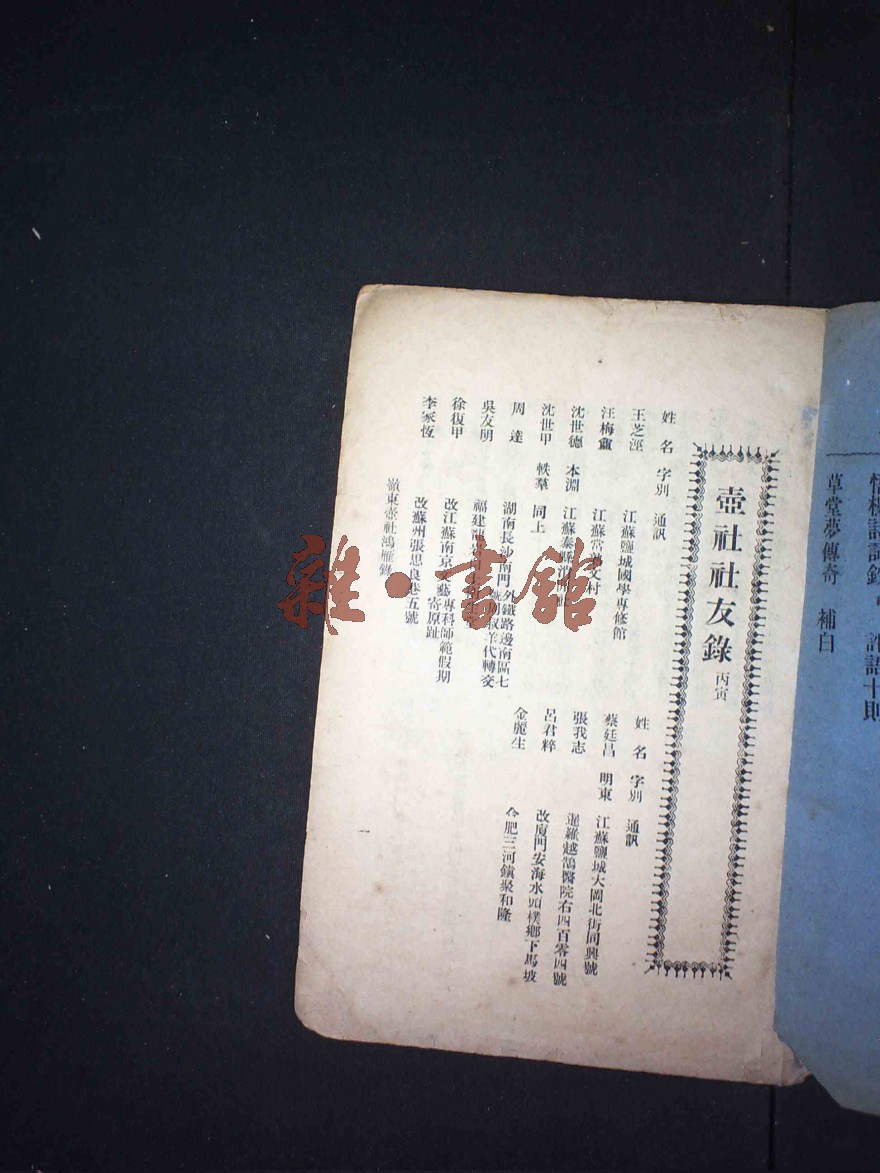 壺社社友錄 丙寅
姓名 字別 通訊
王芝涇 江蘇鹽城國學專修館
汪梅盦 江蘇常 文村
沈世德 本淵 江蘇泰縣
沈世甲 軼羣 同上
周達 湖南長沙南門外鐵路邊南區七
代轉交
吳友明 福建
徐復甲 改江蘇南京 藝專科師範假期
寄原趾
李家恆 改蘇州張思良巷五號
嶺東壺社鴻雁錄
姓名 字別 通訊
蔡廷昌 明東 江蘇鹽城大岡北街同興號
張我志 暹羅越鵠醫院右四百零四號
呂君粹 改廈門安海水頭樸鄉下馬坡
金麗生 合肥三河鎮聚和隆
一
詩話
草堂夢傳奇 補白
雜·書館